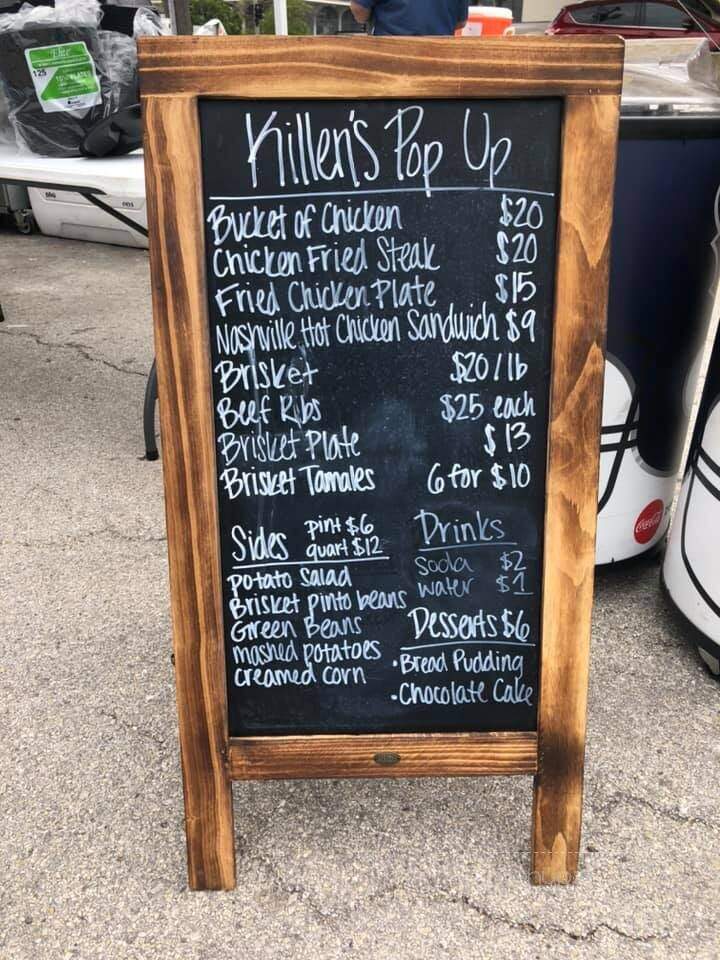 Killen's Pop Up
Bucket of Chicken $20
Chicken Fried Steak $20
Fried Chicken Plate $15
Nashville Hot Chicken Sandwich $9
Brisket $20/lb
Beef Ribs $25 each
Brisket Plate $13
Brisket Tamales 6 for $10
Sides pint $6
quart $12
potato salad
Brisket pinto beans
Green Beans
mashed potatoes
creamed corn
Drinks
soda $2
water $1
Desserts $6
•Bread Pudding
•Chocolate Cake
Coca-Cola
125